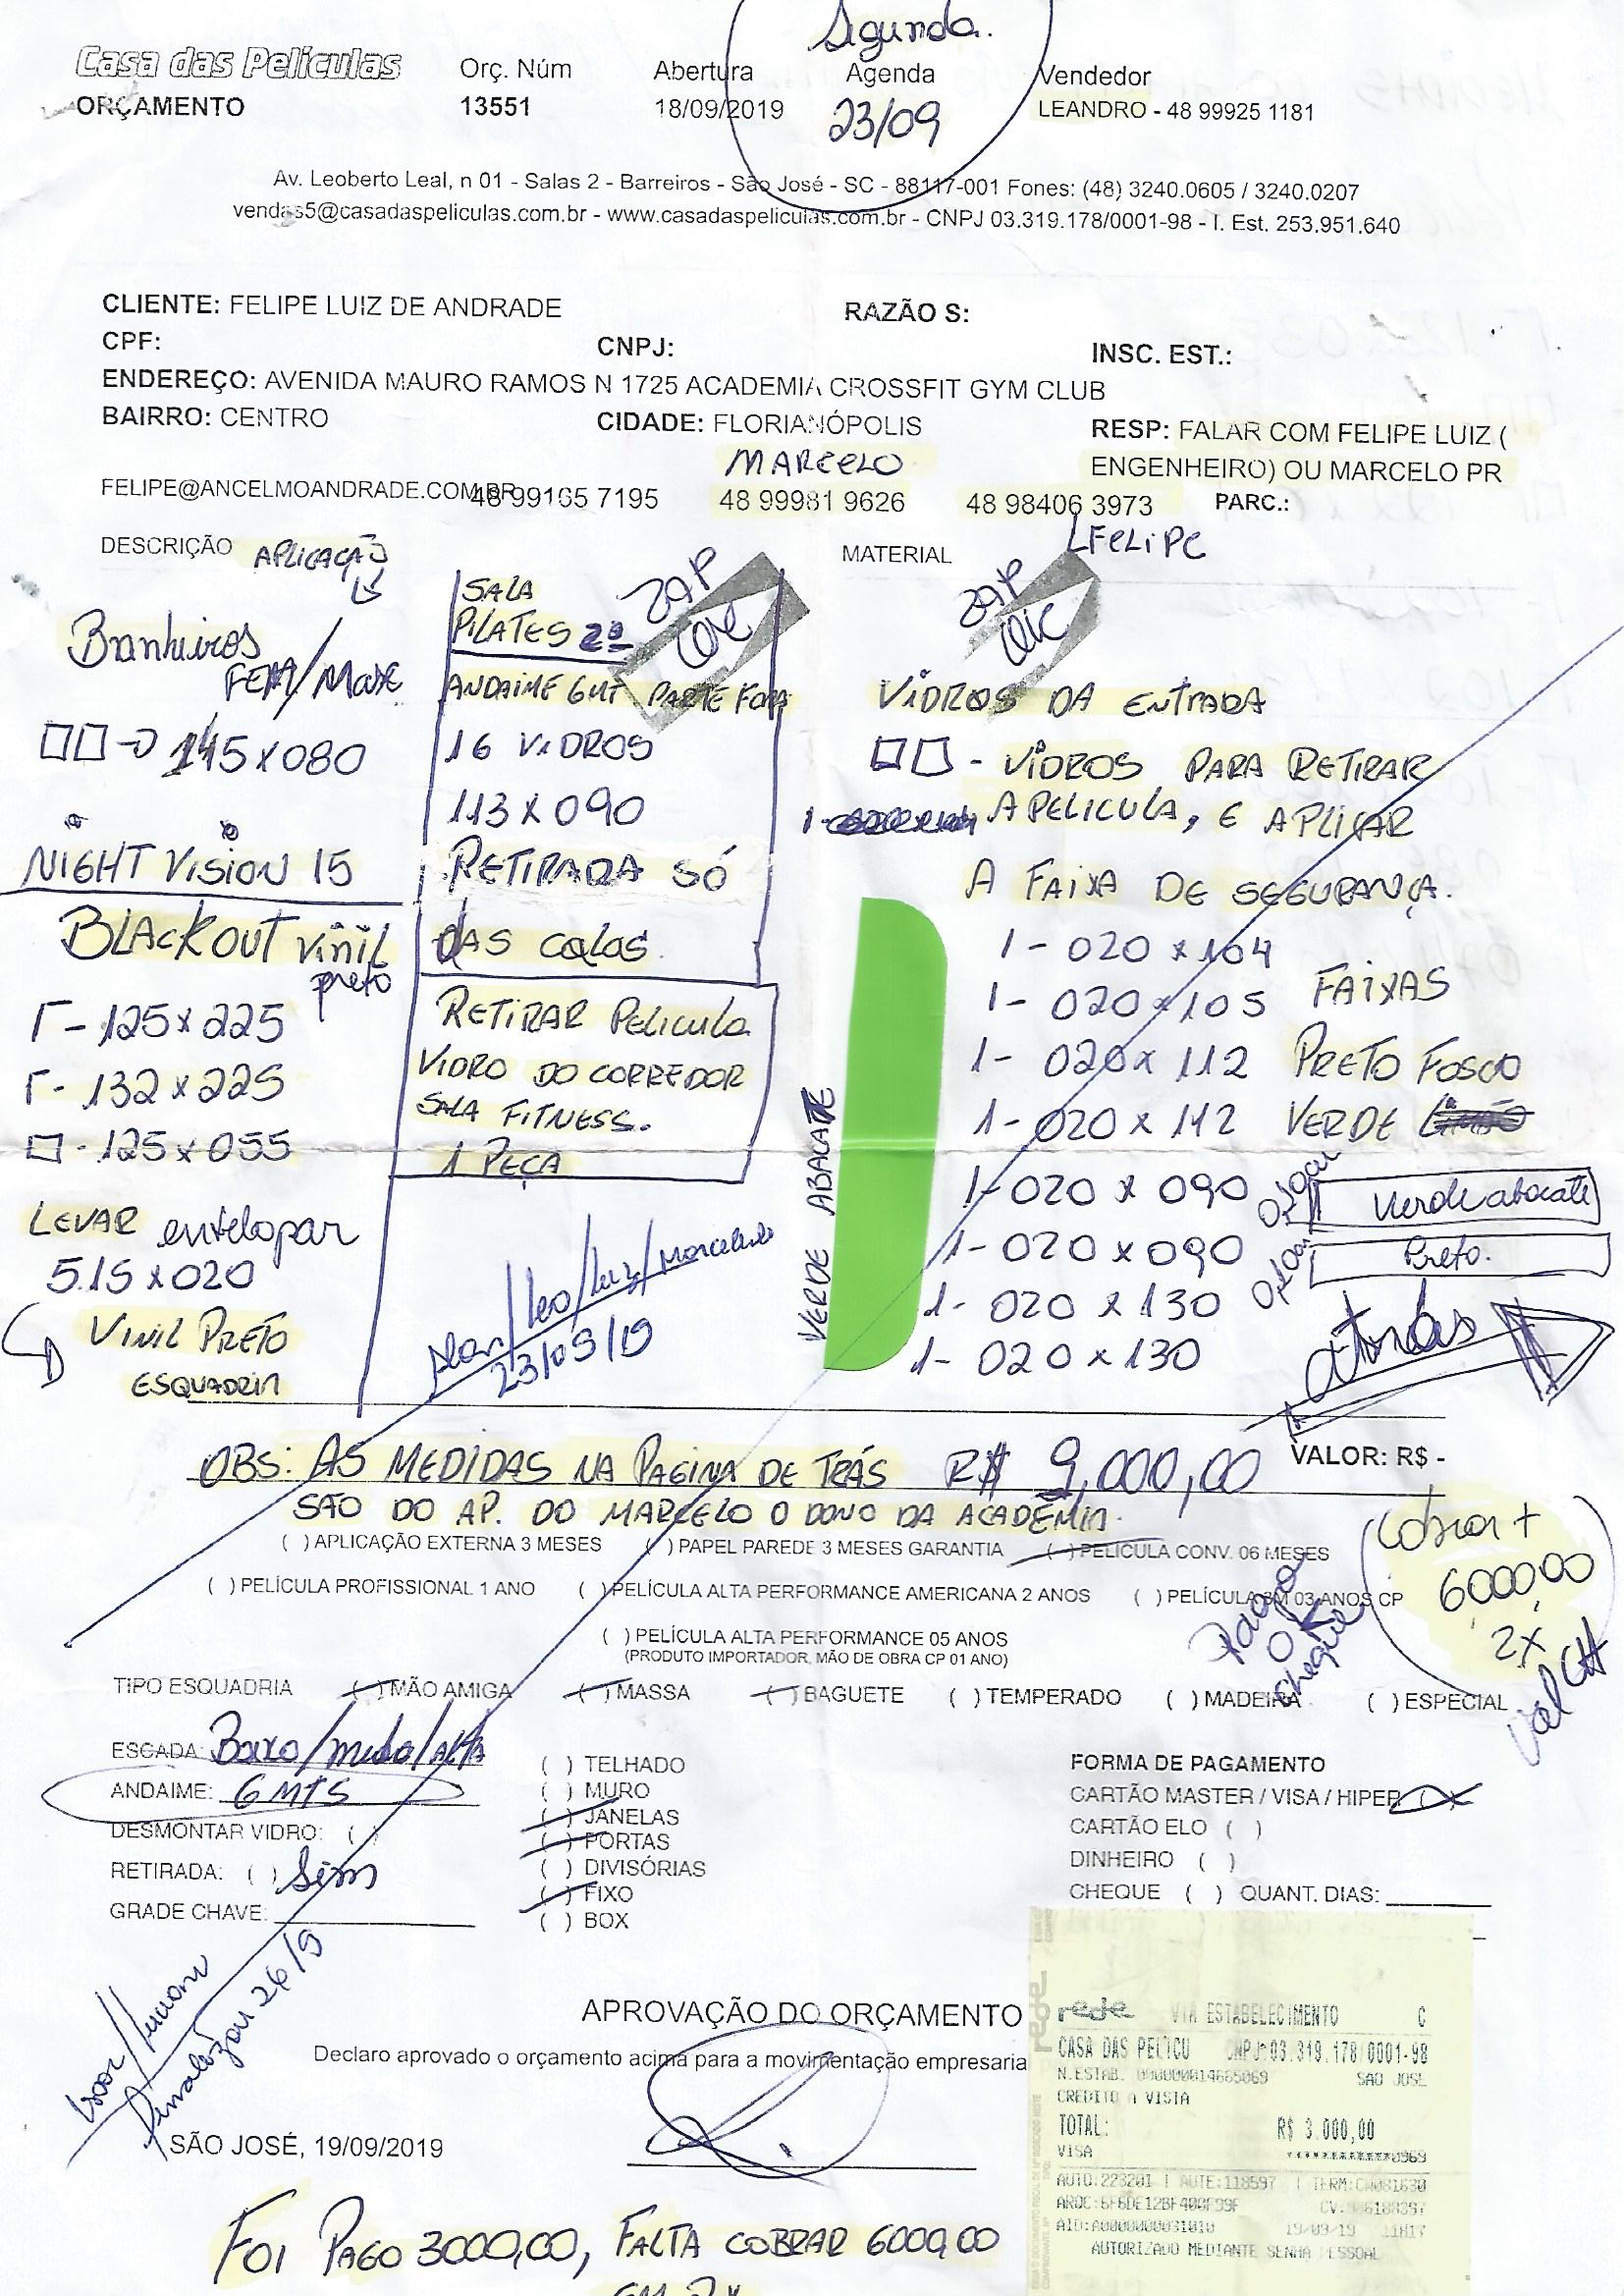 Segunda.
Casa das Películas
Orç. Núm
Abertura
Agenda
Vendedor
ORÇAMENTO
13551
18/09/2019
23/09
LEANDRO - 48 99925 1181
Av. Leoberto Leal, n 01 - Salas 2 - Barreiros - São José - SC - 88117-001 Fones: (48) 3240.0605 / 3240.0207
vendas5@casadaspeliculas.com.br - www.casadaspeliculas.com.br - CNPJ 03.319.178/0001-98 - I. Est. 253.951.640
CLIENTE: FELIPE LUIZ DE ANDRADE
RAZÃO S:
CPF:
CNPJ:
INSC. EST.:
ENDEREÇO: AVENIDA MAURO RAMOS N 1725 ACADEMIA CROSSFIT GYM CLUB
BAIRRO: CENTRO
CIDADE: FLORIANÓPOLIS
RESP: FALAR COM FELIPE LUIZ (
ENGENHEIRO) OU MARCELO PR
MARCELO
FELIPE@ANCELMOANDRADE.COM.BR
48 99165 7195
48 99981 9626
48 98406 3973
PARC.:
FELIPE
DESCRIÇÃO
APLICAÇÃO
MATERIAL
Banheiros
FEM/Masc
145x080
NIGHT VISION 15
BLACKOUT vinil
preto
125x225
132x225
125x055
LEVAR envelopar
5.15x020
VINIL PRETO
ESQUADRIA
SALA
PILATES 2º
ZAP
ANDAIME 6MT PARTE FORA
16 VIDROS
113x090
RETIRADA SÓ
DAS COLAS.
RETIRAR Pelicula
VIDRO DO CORREDOR
SALA FITNESS.
1 PEÇA
Alan/Leo/Luiz/Marcelinho
23/09/19
ZAP
VIDROS DA ENTRADA
- VIDROS PARA RETIRAR
A PELICULA, E APLICAR
A FAIXA DE SEGURANÇA.
1- 020x104
1- 020x105 FAIXAS
1- 020x112 PRETO FOSCO
1- 020x112 VERDE LIMÃO
1- 020x090
1- 020x090
1- 020x130
1- 020x130
VERDE ABACATE
Verde abacate
Preto.
atrás
OBS: AS MEDIDAS NA PAGINA DE TRÁS R$ 9,000,00
VALOR: R$ -
SÃO DO AP. DO MARCELO O DONO DA ACADEMIA.
( ) APLICAÇÃO EXTERNA 3 MESES
( ) PAPEL PAREDE 3 MESES GARANTIA
( ) PELÍCULA CONV. 06 MESES
( ) PELÍCULA PROFISSIONAL 1 ANO
( ) PELÍCULA ALTA PERFORMANCE AMERICANA 2 ANOS
( ) PELÍCULA 3M 03 ANOS CP
( ) PELÍCULA ALTA PERFORMANCE 05 ANOS
(PRODUTO IMPORTADOR, MÃO DE OBRA CP 01 ANO)
Cobrar +
6000,00
2x
OK
cheque
TIPO ESQUADRIA
( ) MÃO AMIGA
( ) MASSA
( ) BAGUETE
( ) TEMPERADO
( ) MADEIRA
( ) ESPECIAL
ESCADA: Baixo/medio/ALTA
ANDAIME: 6 MTS
DESMONTAR VIDRO: ( )
RETIRADA: ( ) Sim
GRADE CHAVE:
( ) TELHADO
( ) MURO
( ) JANELAS
( ) PORTAS
( ) DIVISÓRIAS
( ) FIXO
( ) BOX
FORMA DE PAGAMENTO
CARTÃO MASTER / VISA / HIPER ( )
CARTÃO ELO ( )
DINHEIRO ( )
CHEQUE ( ) QUANT. DIAS:
Finalizou 26/9
APROVAÇÃO DO ORÇAMENTO
Declaro aprovado o orçamento acima para a movimentação empresaria
SÃO JOSÉ, 19/09/2019
rede VIA ESTABELECIMENTO C
CASA DAS PELICU CNPJ:03.319.178/0001-98
SAO JOSE
CREDITO A VISTA
TOTAL: R$ 3.000,00
VISA ************0969
AUTO:223201 | AUTE:118597
19/09/19 11H17
AUTORIZADO MEDIANTE SENHA PESSOAL
FOI PAGO 3000,00, FALTA COBRAR 6000,00
EM 2x